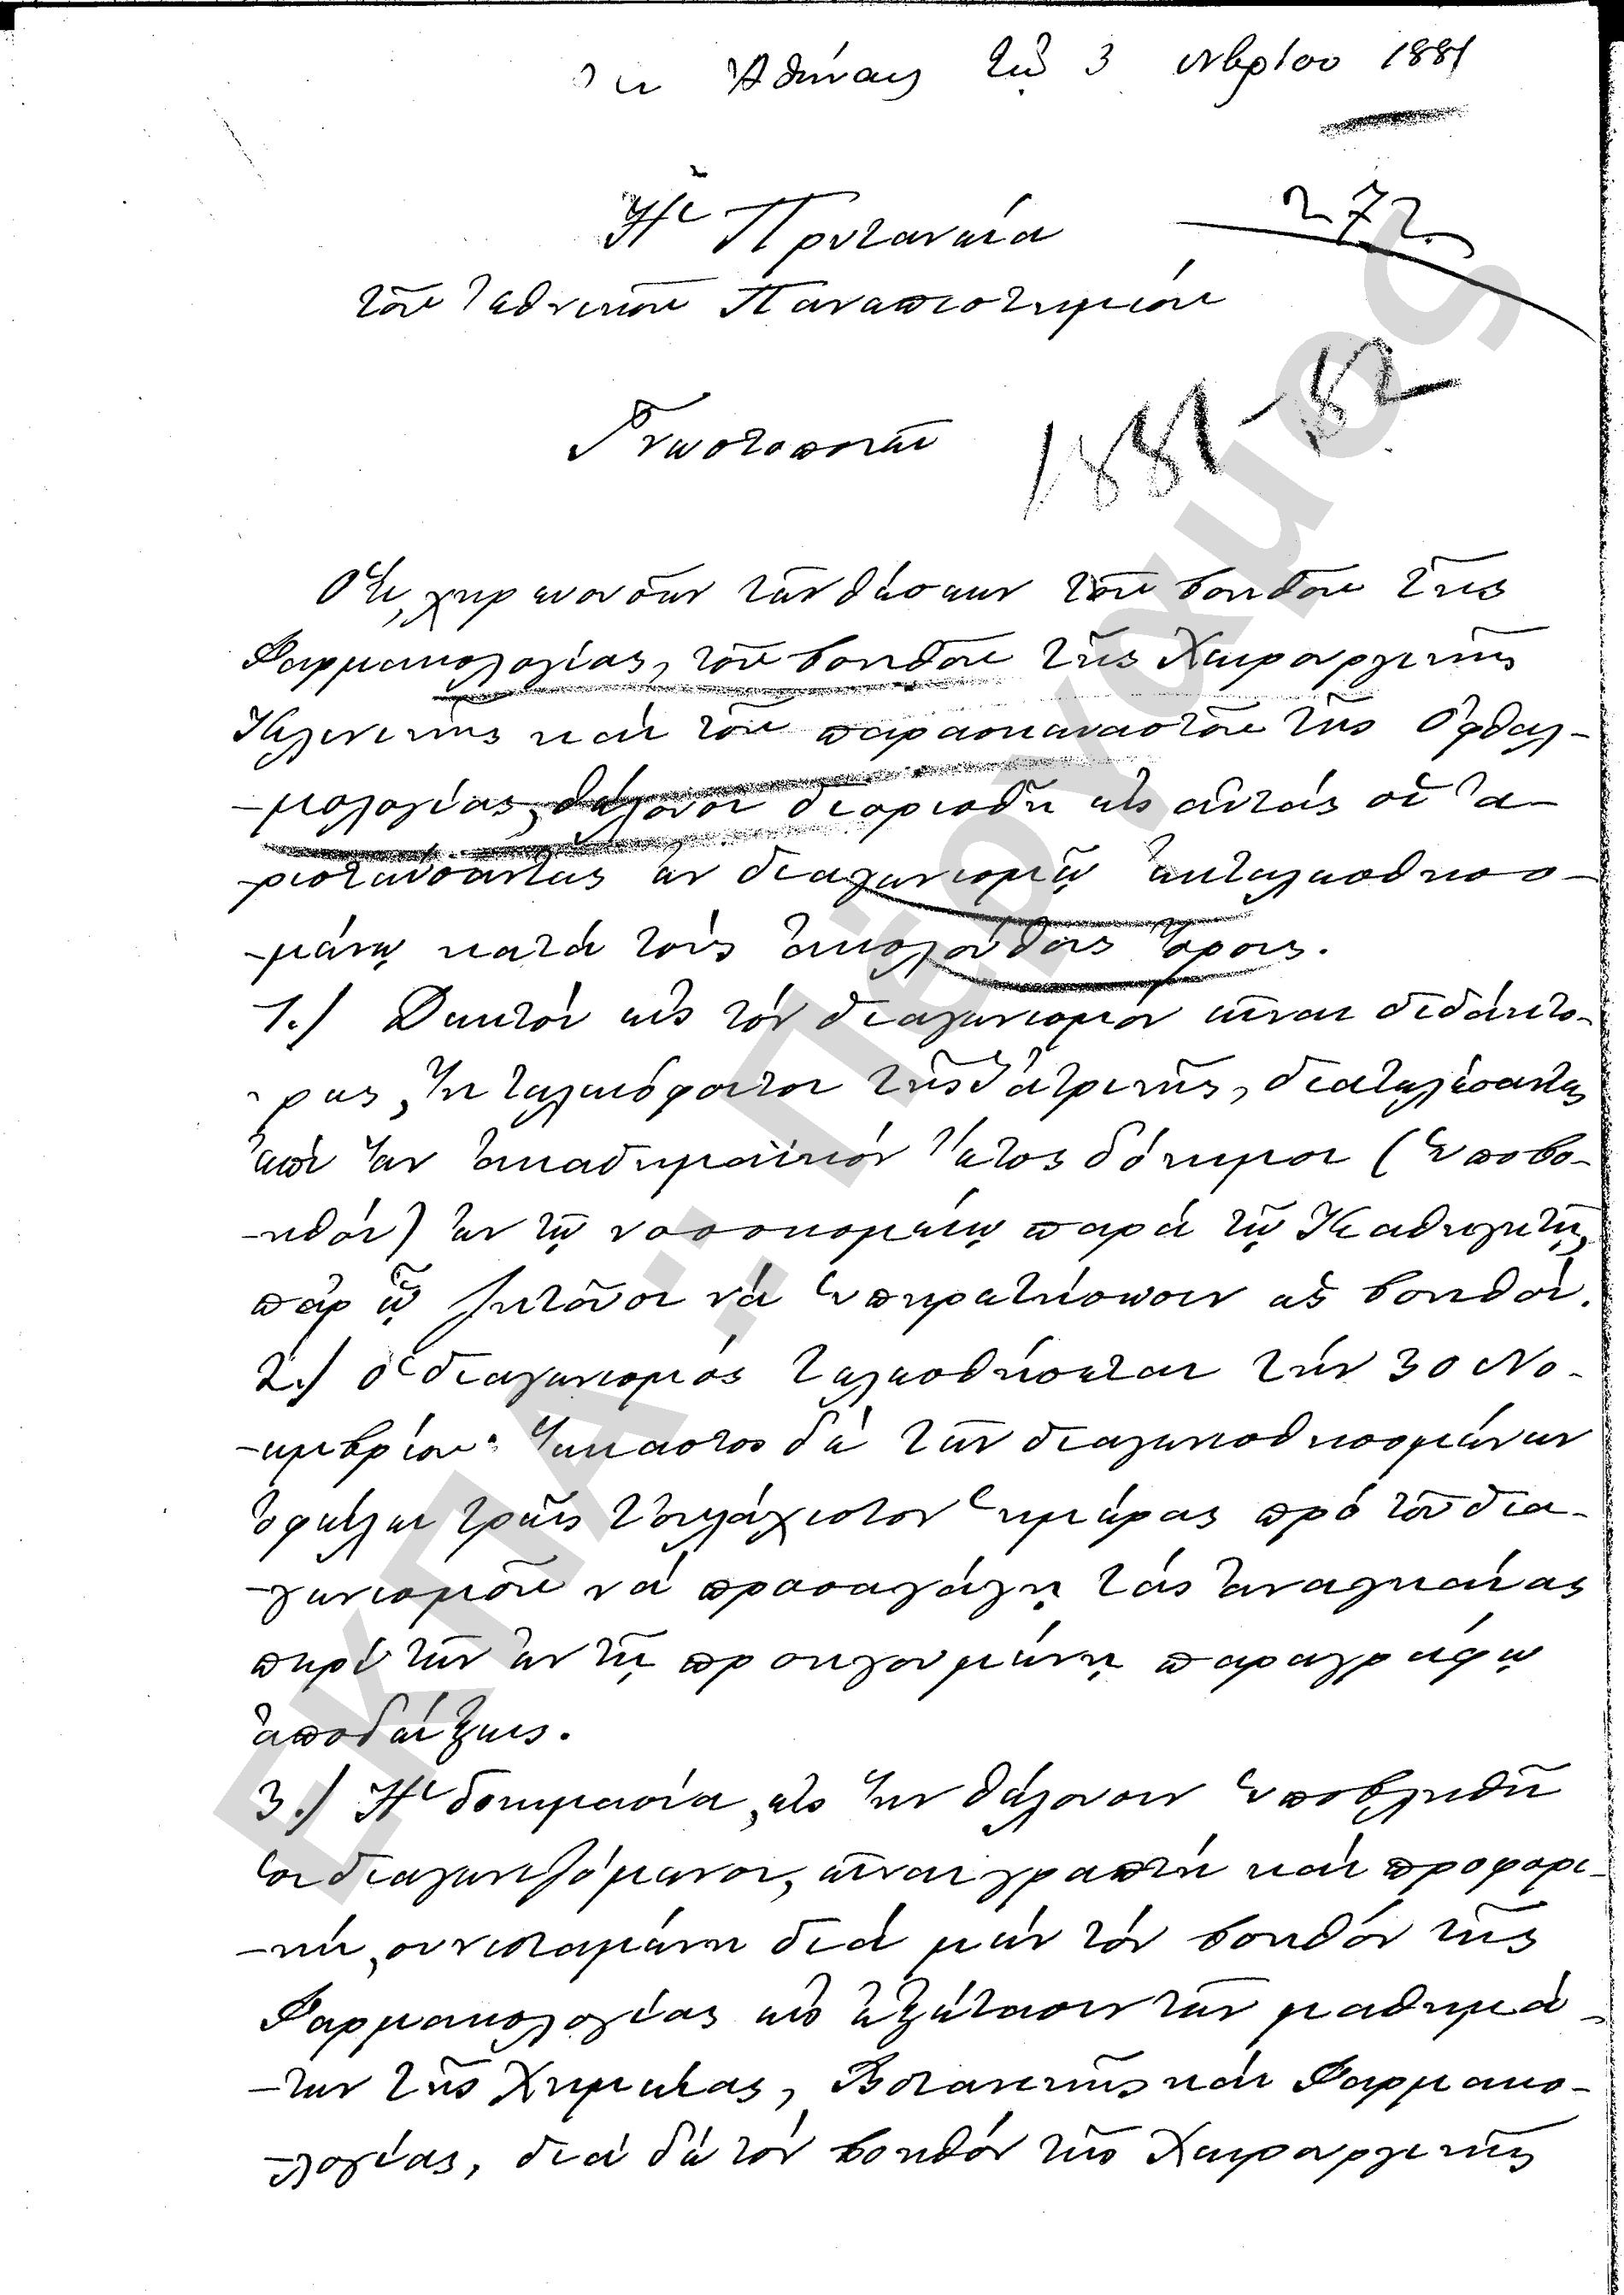 Ἐν Ἀθήναις τῇ 3 Νβρίου 1881
272
Ἡ Πρυτανεία
τοῦ Ἐθνικοῦ Πανεπιστημίου
1881-82
Γνωστοποιεῖ
Ὅτι, χηρευουσῶν τῶν θέσεων τοῦ βοηθοῦ τῆς
Φαρμακολογίας, τοῦ βοηθοῦ τῆς Χειρουργικῆς
Κλινικῆς καὶ τοῦ παρασκευαστοῦ τῆς Ὀφθαλ-
-μολογίας, θέλουσι διορισθῆ εἰς αὐτὰς οἱ ἀ-
-ριστεύσαντες ἐν διαγωνισμῷ ἐκτελεσθησο-
-μένῳ κατὰ τοὺς ἀκολούθους ὅρους.
1.) Δεκτοὶ εἰς τὸν διαγωνισμὸν εἶναι διδάκτο-
-ρες, ἢ τελειόφοιτοι τῆς Ἰατρικῆς, διατελέσαντες
ἐπὶ ἓν ἀκαδημαϊκὸν ἔτος δόκιμοι (ὑποβο-
-ηθοὶ) ἐν τῷ νοσοκομείῳ παρὰ τῷ Καθηγητῇ,
παρ' ᾧ ζητοῦσι νὰ ὑπηρετήσωσιν ὡς βοηθοί.
2.) Ὁ διαγωνισμὸς τελεσθήσεται τὴν 30 Νο-
-εμβρίου· ἕκαστος δὲ τῶν διαγωνισθησομένων
ὀφείλει τρεῖς τοὐλάχιστον ἡμέρας πρὸ τοῦ δια-
-γωνισμοῦ νὰ προσαγάγῃ τὰς ἀναγκαίας
περὶ τῶν ἐν τῇ προηγουμένῃ παραγράφῳ
ἀποδείξεις.
3.) Ἡ δοκιμασία, εἰς ἣν θέλουσιν ὑποβληθῆ
οἱ διαγωνιζόμενοι, εἶναι γραπτὴ καὶ προφορι-
-κή, συνισταμένη διὰ μὲν τὸν βοηθὸν τῆς
Φαρμακολογίας εἰς ἐξέτασιν τῶν μαθημά-
-των τῆς Χημείας, Βοτανικῆς καὶ Φαρμακο-
-λογίας, διὰ δὲ τὸν βοηθὸν τῆς Χειρουργικῆς
ΕΚΠΑ: Πέργαμος